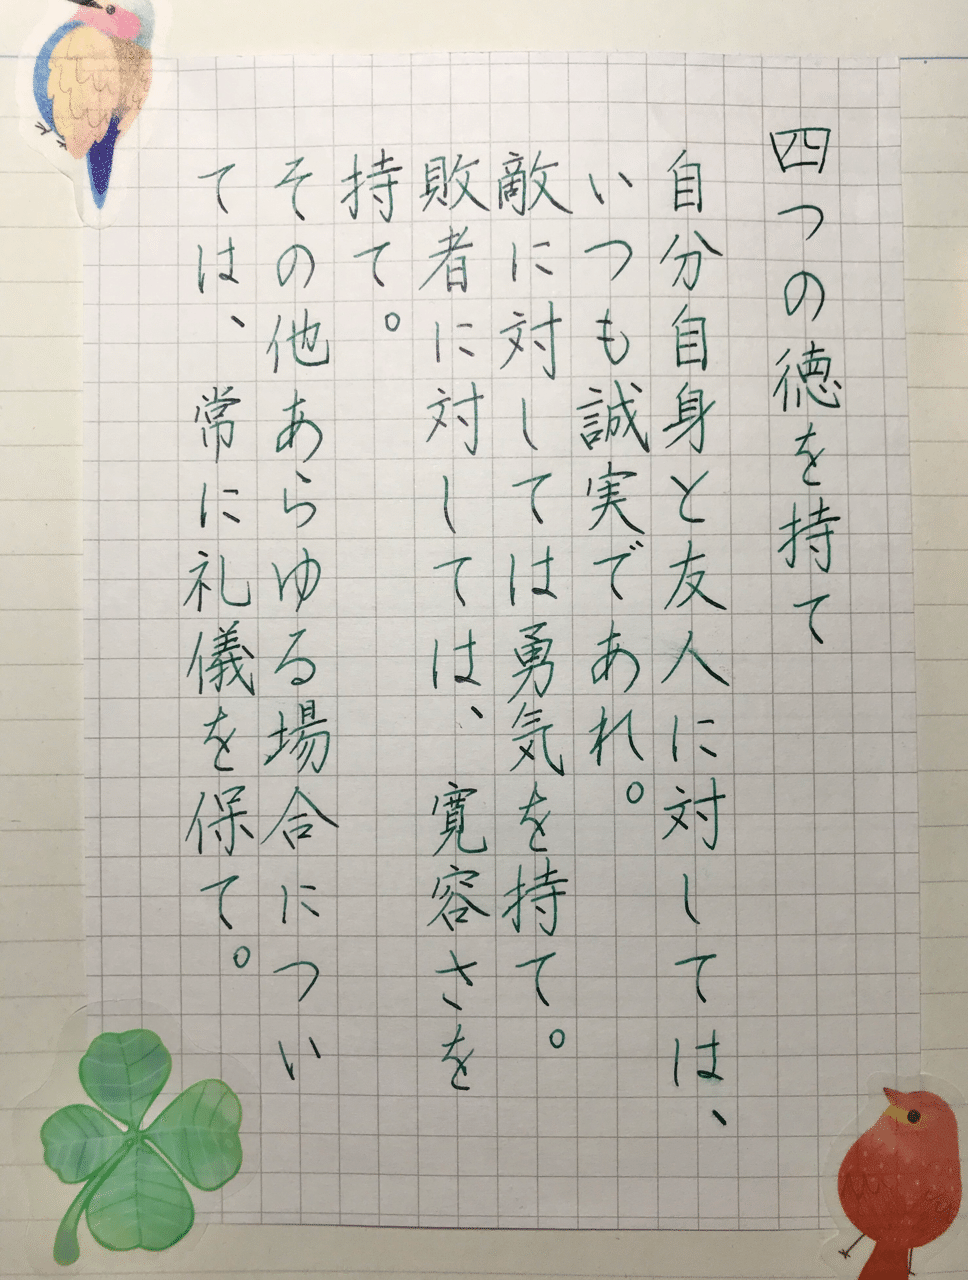 四つの徳を持て
自分自身と友人に対しては、
いつも誠実であれ。
敵に対しては勇気を持て。
敗者に対しては、寛容さを
持て。
その他あらゆる場合につい
ては、常に礼儀を保て。